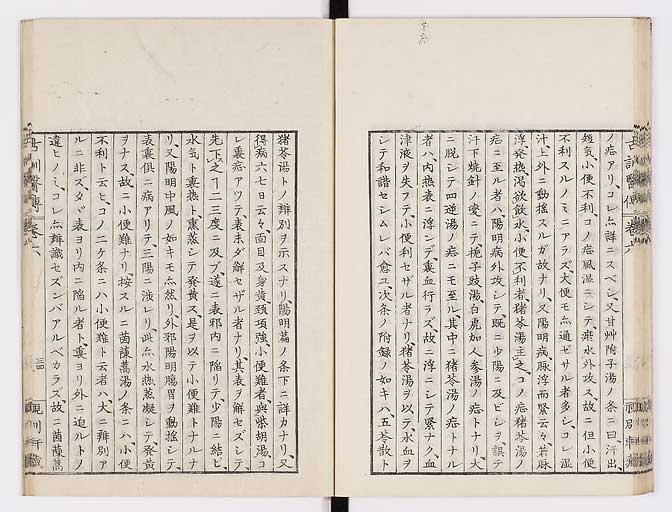 ノ症アリコレ亦詳ニスベシ又甘艸附子湯ノ条ニ曰汗出、
短氣小便不利コノ症風湿ニシテ乗水外攻ス故ニ但小便
不利スルノミニアラズ大便モ亦通ゼサル者多シコレ湿
汁上外ニ動揺スルガ故ナリ又陽明病脉浮而緊云々若脉
浮発熱渇欲飲水小便不利者猪苓湯主之コノ症猪苓湯ノ
症ニ至ル者ハ陽明病外攻シテ既ニ少陽ニ及ビシヲ誤テ
汗下焼針ノ変ニテ梔子豉湯白虎加人参湯ノ症トナリ大
ニ脱シテ四逆湯ノ症ニモ至ル其中ニ猪苓湯ノ症トナル
者ハ内熱表ニ浮ンデ裏血行ラズ故ニ浮ニシテ緊ナク血
津液ヲ失フテ小便利セザル者ナリ猪苓湯ヲ以テ水血ヲ
シテ和諧セシムレバ愈ユ次条ノ附録ノ如キハ五苓散ト
猪苓湯トノ辨別ヲ示スナリ陽明篇ノ条下ニ詳カナリ又
得病六七日云々面目及身黄頸項強小便難者與柴胡湯コ
レ裏症アツテ表未ダ解セザル者ナリ其表ヲ解セズシテ
先下之ヿ二三度ニ及ブ遂ニ表邪内ニ陥リテ少陽ニ結ビ
水気ト裏熱ト熏蒸シテ発黄ス是ヲ以テ小便難トナルナ
リ又陽明中風ノ如キモ亦然リ外邪陽明膓胃ヲ動揺シテ
表裏倶ニ病アリテ三陽ニ渉レリ此亦水熱蒸凝シテ発黄
ヲナス故ニ小便難ナリ按スルニ茵蔯蒿湯ノ条ニハ小便
不利ト云ヒコノ二ケ条ニハ小便難ト云者ハ大ニ辨別ア
ルニ非ズタヾ表ヨリ内ニ陥ル者ト裏ヨリ外ニ迫ルトノ
違ヒノミコレ亦辨識セズンバアルベカラズ故ニ茵蔯蒿
古訓醫傳 巻六